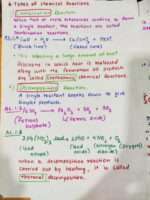 * Types of chemical Reactions
Combination Reaction
Which two or more substances combine to form
a single product the reactions are called
combination reactions.
CaO + H₂O → Ca(OH)₂ + HEAT
(Quick lime) (Slaked lime)
releasing a large amount of heat
Reactions in which heat is released
along with the formation of product
are called Exothermic chemical reactions
Decomposition Reaction
A single reactant breaks down to give
simpler products.
2FeSO₄ → Fe₂O₃ + SO₂ + SO₃
(Ferrous sulphate) (Ferric oxide)
2Pb(NO₃)₂ → 2PbO + 4NO₂ + O₂
(lead nitrate) (lead oxide) (nitrogen dioxide) (oxygen)
when a decomposition reaction is
carried out by heating, it is called
thermal decomposition.